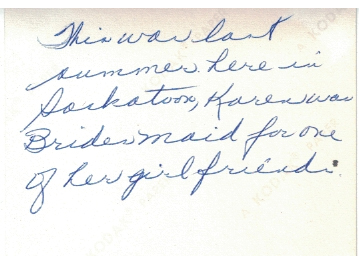 This was last
summer here in
Saskatoon, Karen was
Bridesmaid for one
of her girl friends.